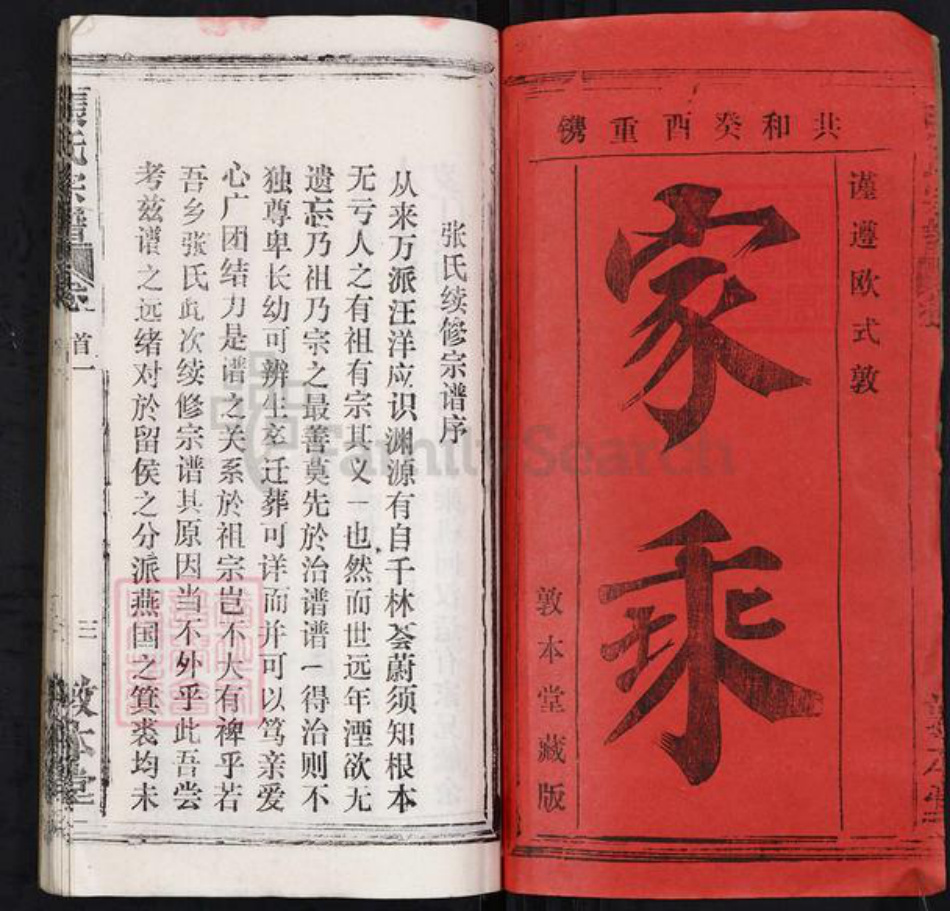 共和癸酉重镌
谨遵欧式敦
家乘
敦本堂藏版
张氏续修宗谱序
从来万派汪洋应识渊源有自千林荟蔚须知根本
无亏人之有祖有宗其义一也然而世远年湮欲无
遗忘乃祖乃宗之最善莫先於治谱谱一得治则不
独尊卑长幼可辨生卒迁葬可详而并可以笃亲爱
心广团结力是谱之关系於祖宗岂不大有裨乎若
吾乡张氏此次续修宗谱其原因当不外乎此吾尝
考兹谱之远绪对於留侯之分派燕国之箕裘均未
張氏宗譜
卷首一
三
敦本堂
FamilySearch